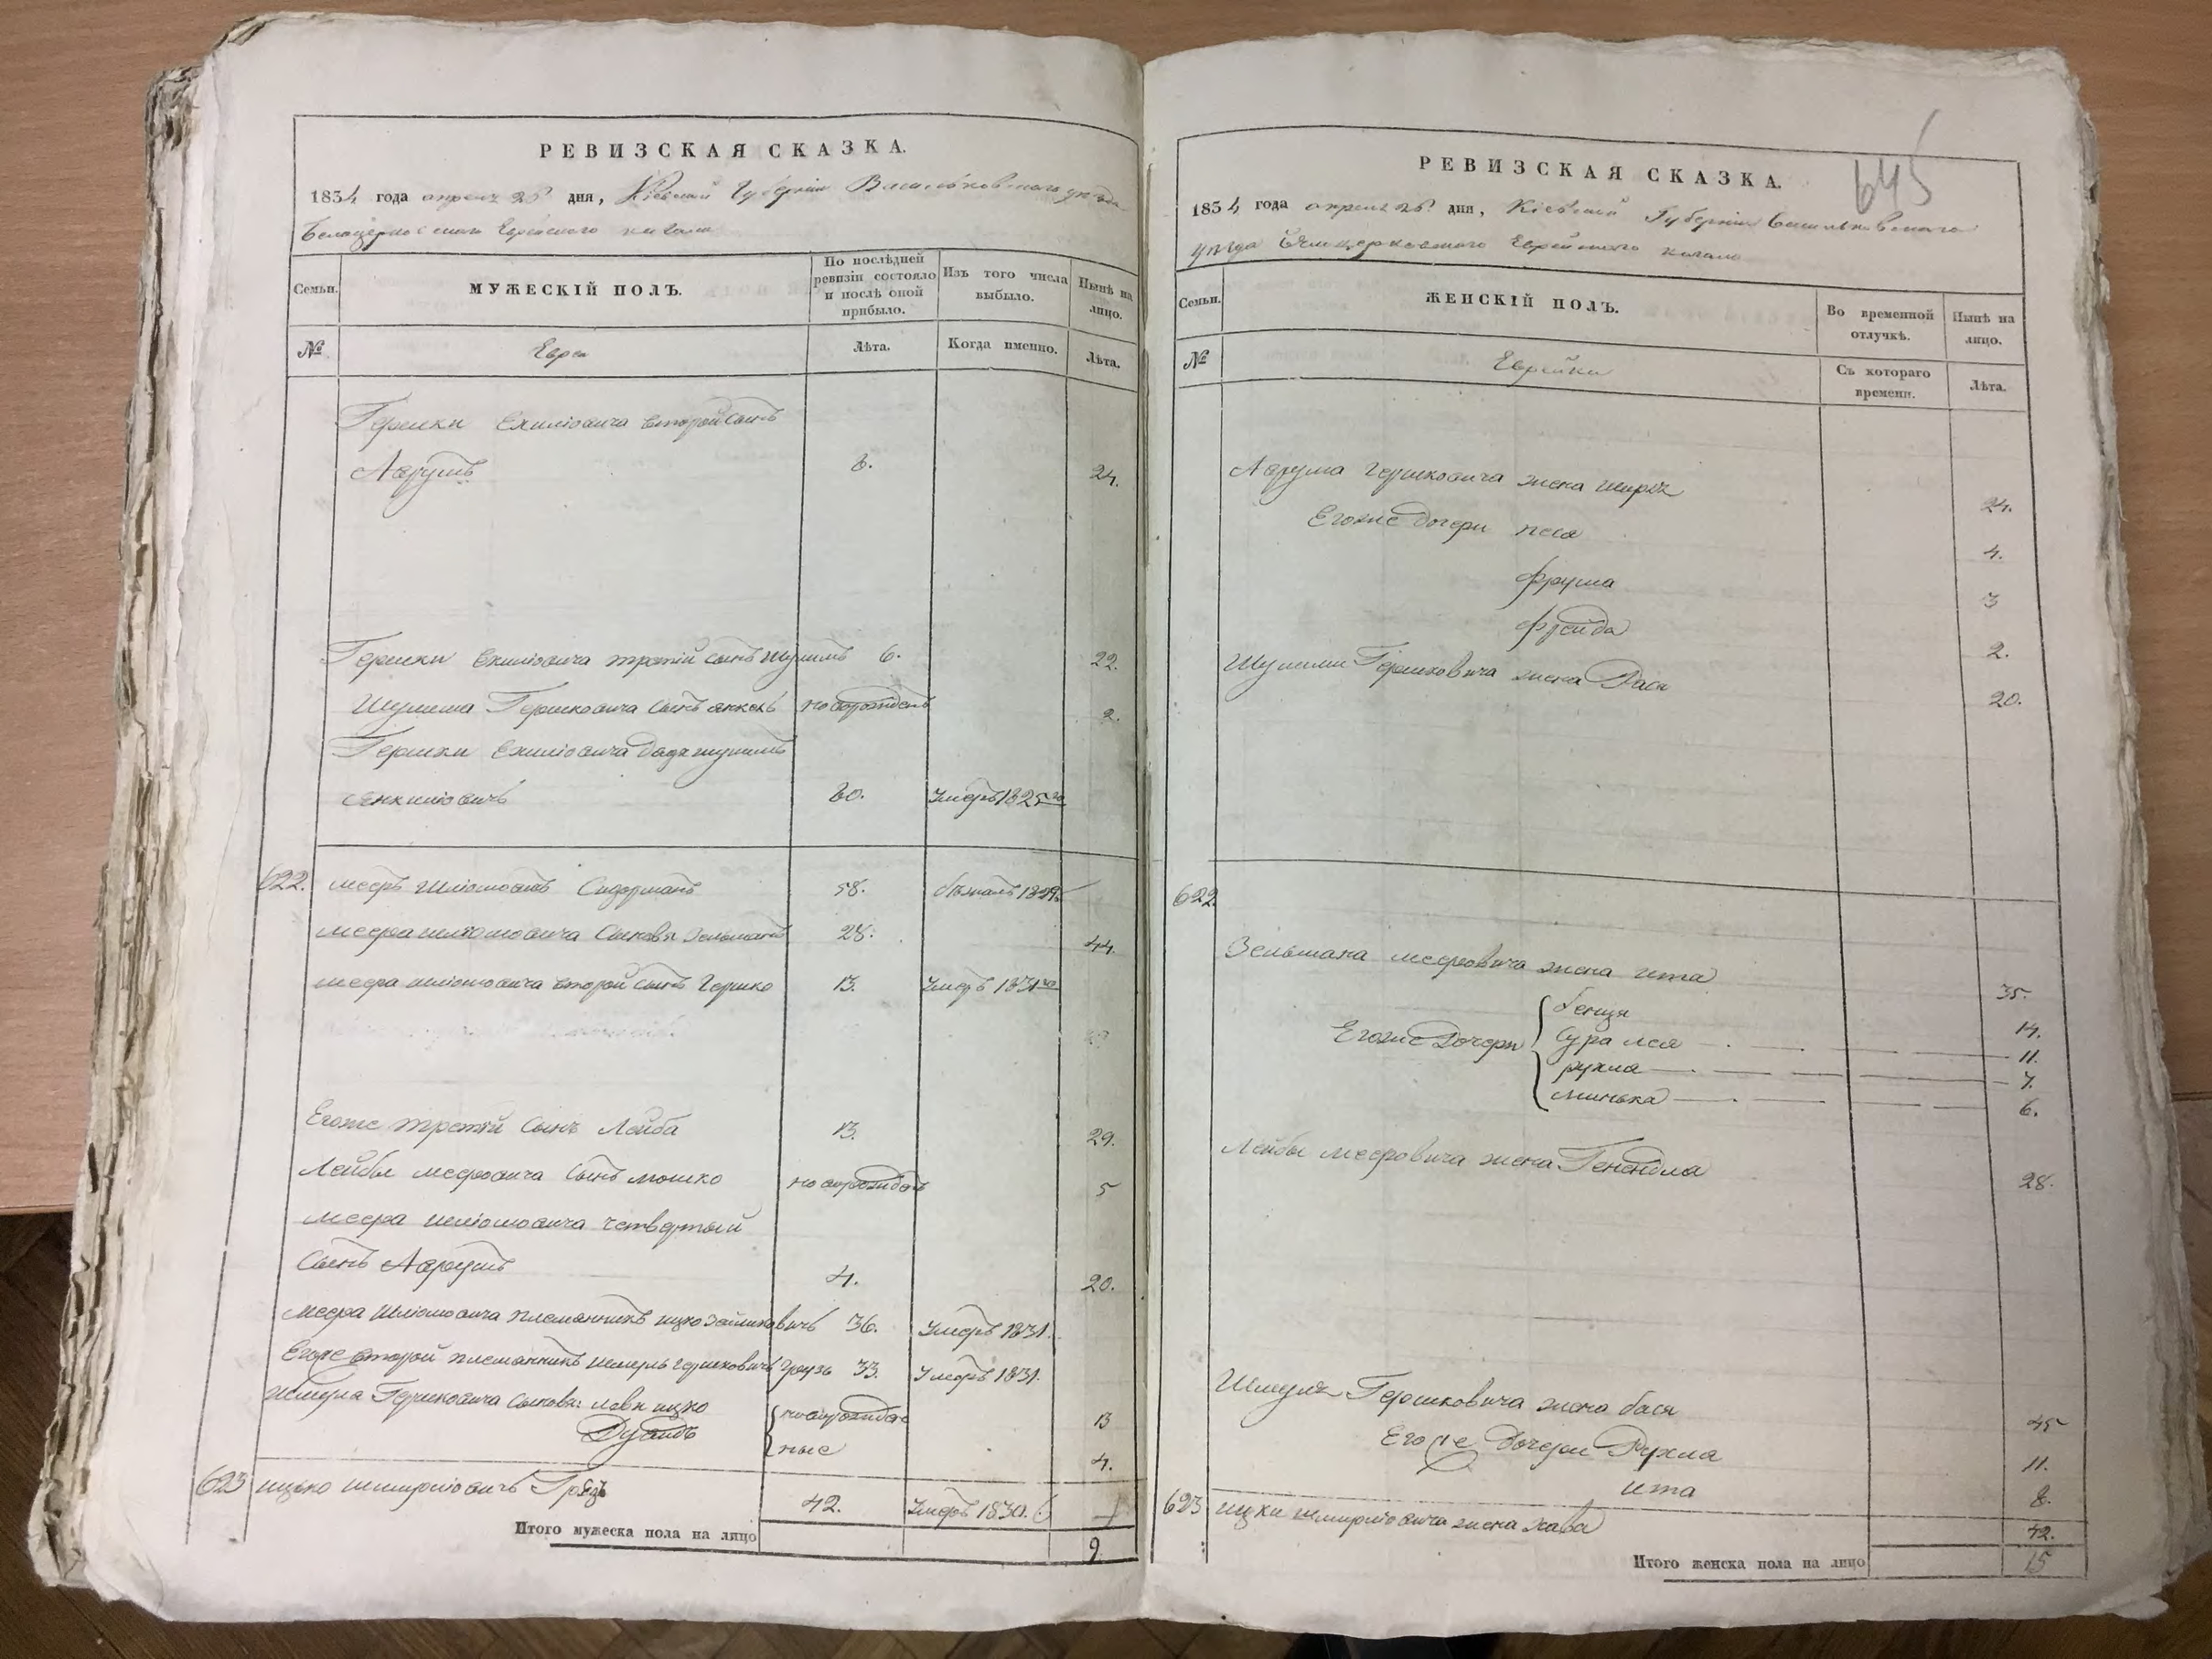 РЕВИЗСКАЯ СКАЗКА.
1834 года апреля 25 дня, Кіевской Губерніи Васильковского уезда
Белоцерковского Еврейского кагала
Семьи.
МУЖЕСКІЙ ПОЛЪ.
По послѣдней ревизіи состояло и послѣ оной прибыло.
Изъ того числа выбыло.
Нынѣ на лицо.
№
Евреи
Лѣта.
Когда именно.
Лѣта.
Гершки второй сынъ
Аврумъ 8. 24.
Гершки третій сынъ Шулимъ 6. 22.
Шулима Гершковича сынъ янкель новорожденъ 2.
Гершки дядя шулимъ
60. Умеръ 1825го
622. мееръ Шліомовичъ 58. бѣжалъ 1829
меера шліомовича сыновья Зельманъ 28. 44.
меера шліомовича второй сынъ Гершко 13. Умеръ 1831го
Егоже третій сынъ Лейба 13. 29.
Лейбы мееровича сынъ мошко новорожденъ 5
меера шліомовича четвертый
сынъ Аврумъ 4. 20.
меера Шліомовича племянникъ ицко 36. Умеръ 1831.
Егоже второй племянникъ шмуль гершковичъ 33. Умеръ 1831.
шмуля Гершковича сыновья: ицко новорожден 13
Дувидъ ные 4.
623 ицько 42. Умеръ 1830.
Итого мужеска пола на лицо 9.
645
РЕВИЗСКАЯ СКАЗКА.
1834 года апреля 25 дня, Кіевской Губерніи Васильковского
уезда Белоцерковского Еврейского кагала
Семьи.
ЖЕНСКІЙ ПОЛЪ.
Во временной отлучкѣ.
Нынѣ на лицо.
№
Еврейки
Съ котораго времени.
Лѣта.
Аврума Гершковича жена 24.
Егоже дочери песя 4.
фрума 3
фрейда 2.
Шулима Гершковича жена Рася 20.
622.
Зельмана меровича жена ита 35.
Егоже Дочери 14.
Сура лея 11.
рухля 7.
минька 6.
Лейбы меровича жена Генендля 28.
Шмуля Гершковича жена бася 45
Егоже Дочери Рухля 11.
ита 8.
623 ицки жена хава 42.
Итого женска пола на лицо 15